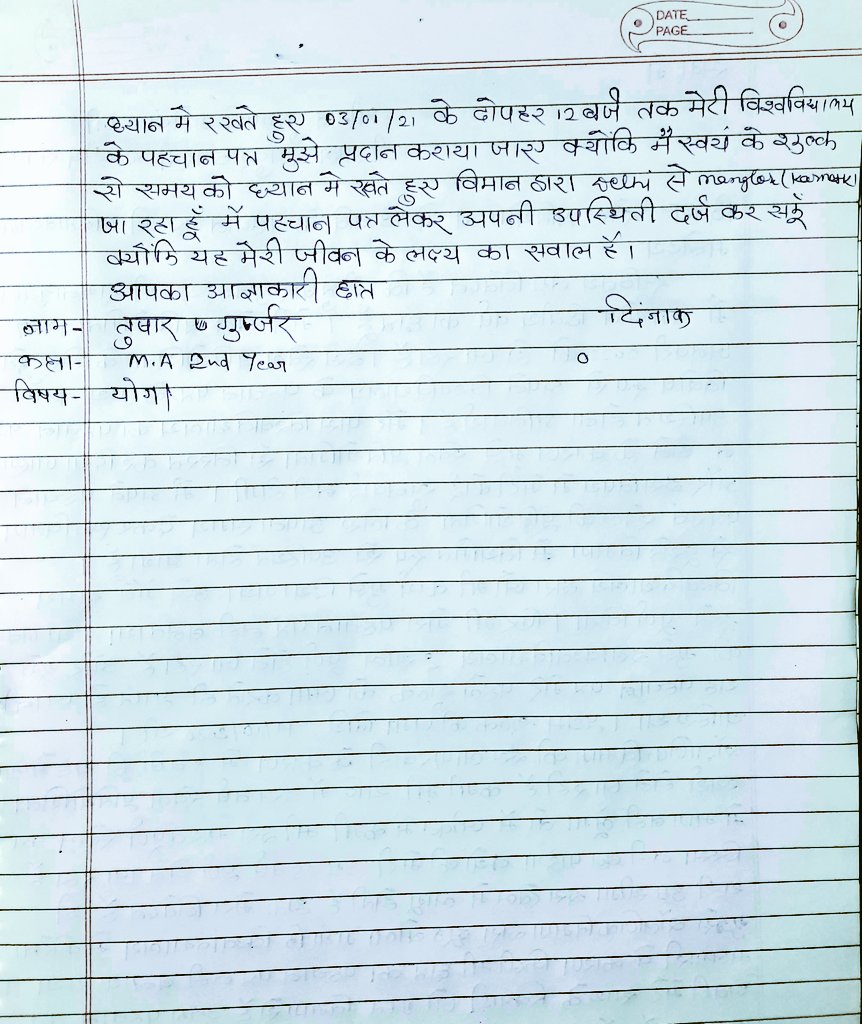 DATE
PAGE
ध्यान मे रखते हुए 03/01/21 के दोपहर 12 बजे तक मेरी विश्वविद्यालय
के पहचान पत्र मुझे प्रदान कराया जाए क्योंकि मैं स्वयं के शुल्क
से समय को ध्यान मे रखते हुए विमान द्वारा Delhi से Manglor (Karnatak)
जा रहा हूँ मैं पहचान पत्र लेकर अपनी उपस्थिती दर्ज कर सकूँ
क्योंकि यह मेरी जीवन के लक्ष्य का सवाल है।
आपका आज्ञाकारी छात्र
नाम- तुषार गुर्जर दिनांक
कक्षा- M.A 2nd Year
विषय- योग।